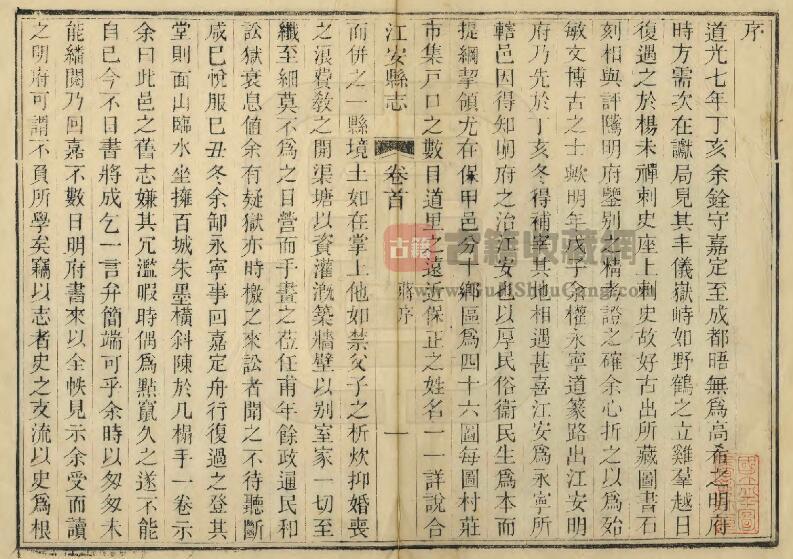 序
道光七年丁亥余銓守嘉定至成都晤無爲高希之明府
時方需次在讞局見其丰儀嶽峙如野鶴之立雞羣越日
復遇之於楊未禪刺史座上刺史故好古出所藏圖書石
刻相與評隲明府鑒別之精考證之確余心折之以爲殆
敏文博古之士歟明年戊子余權永寧道篆路出江安明
府乃先於丁亥冬得補宰其地相遇甚喜江安爲永寧所
轄邑因得知明府之治江安也以厚民俗衛民生爲本而
提綱挈領尤在保甲邑分十鄉區爲四十六圖每圖村莊
市集戸口之數目道里之遠近保正之姓名一一詳說合
江安縣志
卷首
蔣序
一
而併之一縣境土如在掌上他如禁父子之析炊抑婚喪
之浪費敎之開渠塘以資灌溉築牆壁以別室家一切至
纖至細莫不爲之日營而手畫之莅任甫年餘政通民和
訟獄衰息值余有疑獄亦時檄之來訟者聞之不待聽斷
咸巳悅服巳丑冬余卸永寧事回嘉定舟行復過之登其
堂則面山臨水坐擁百城朱墨橫斜陳於几榻手一卷示
余曰此邑之舊志嫌其冗濫暇時偶爲點竄久之遂不能
自已今不日書將成乞一言弁簡端可乎余時以匆匆未
能繙閱乃回嘉不數日明府書來以全帙見示余受而讀
之明府可謂不負所學矣竊以志者史之支流以史爲根
古籍
古籍收藏網
www.GujiShuCang.com